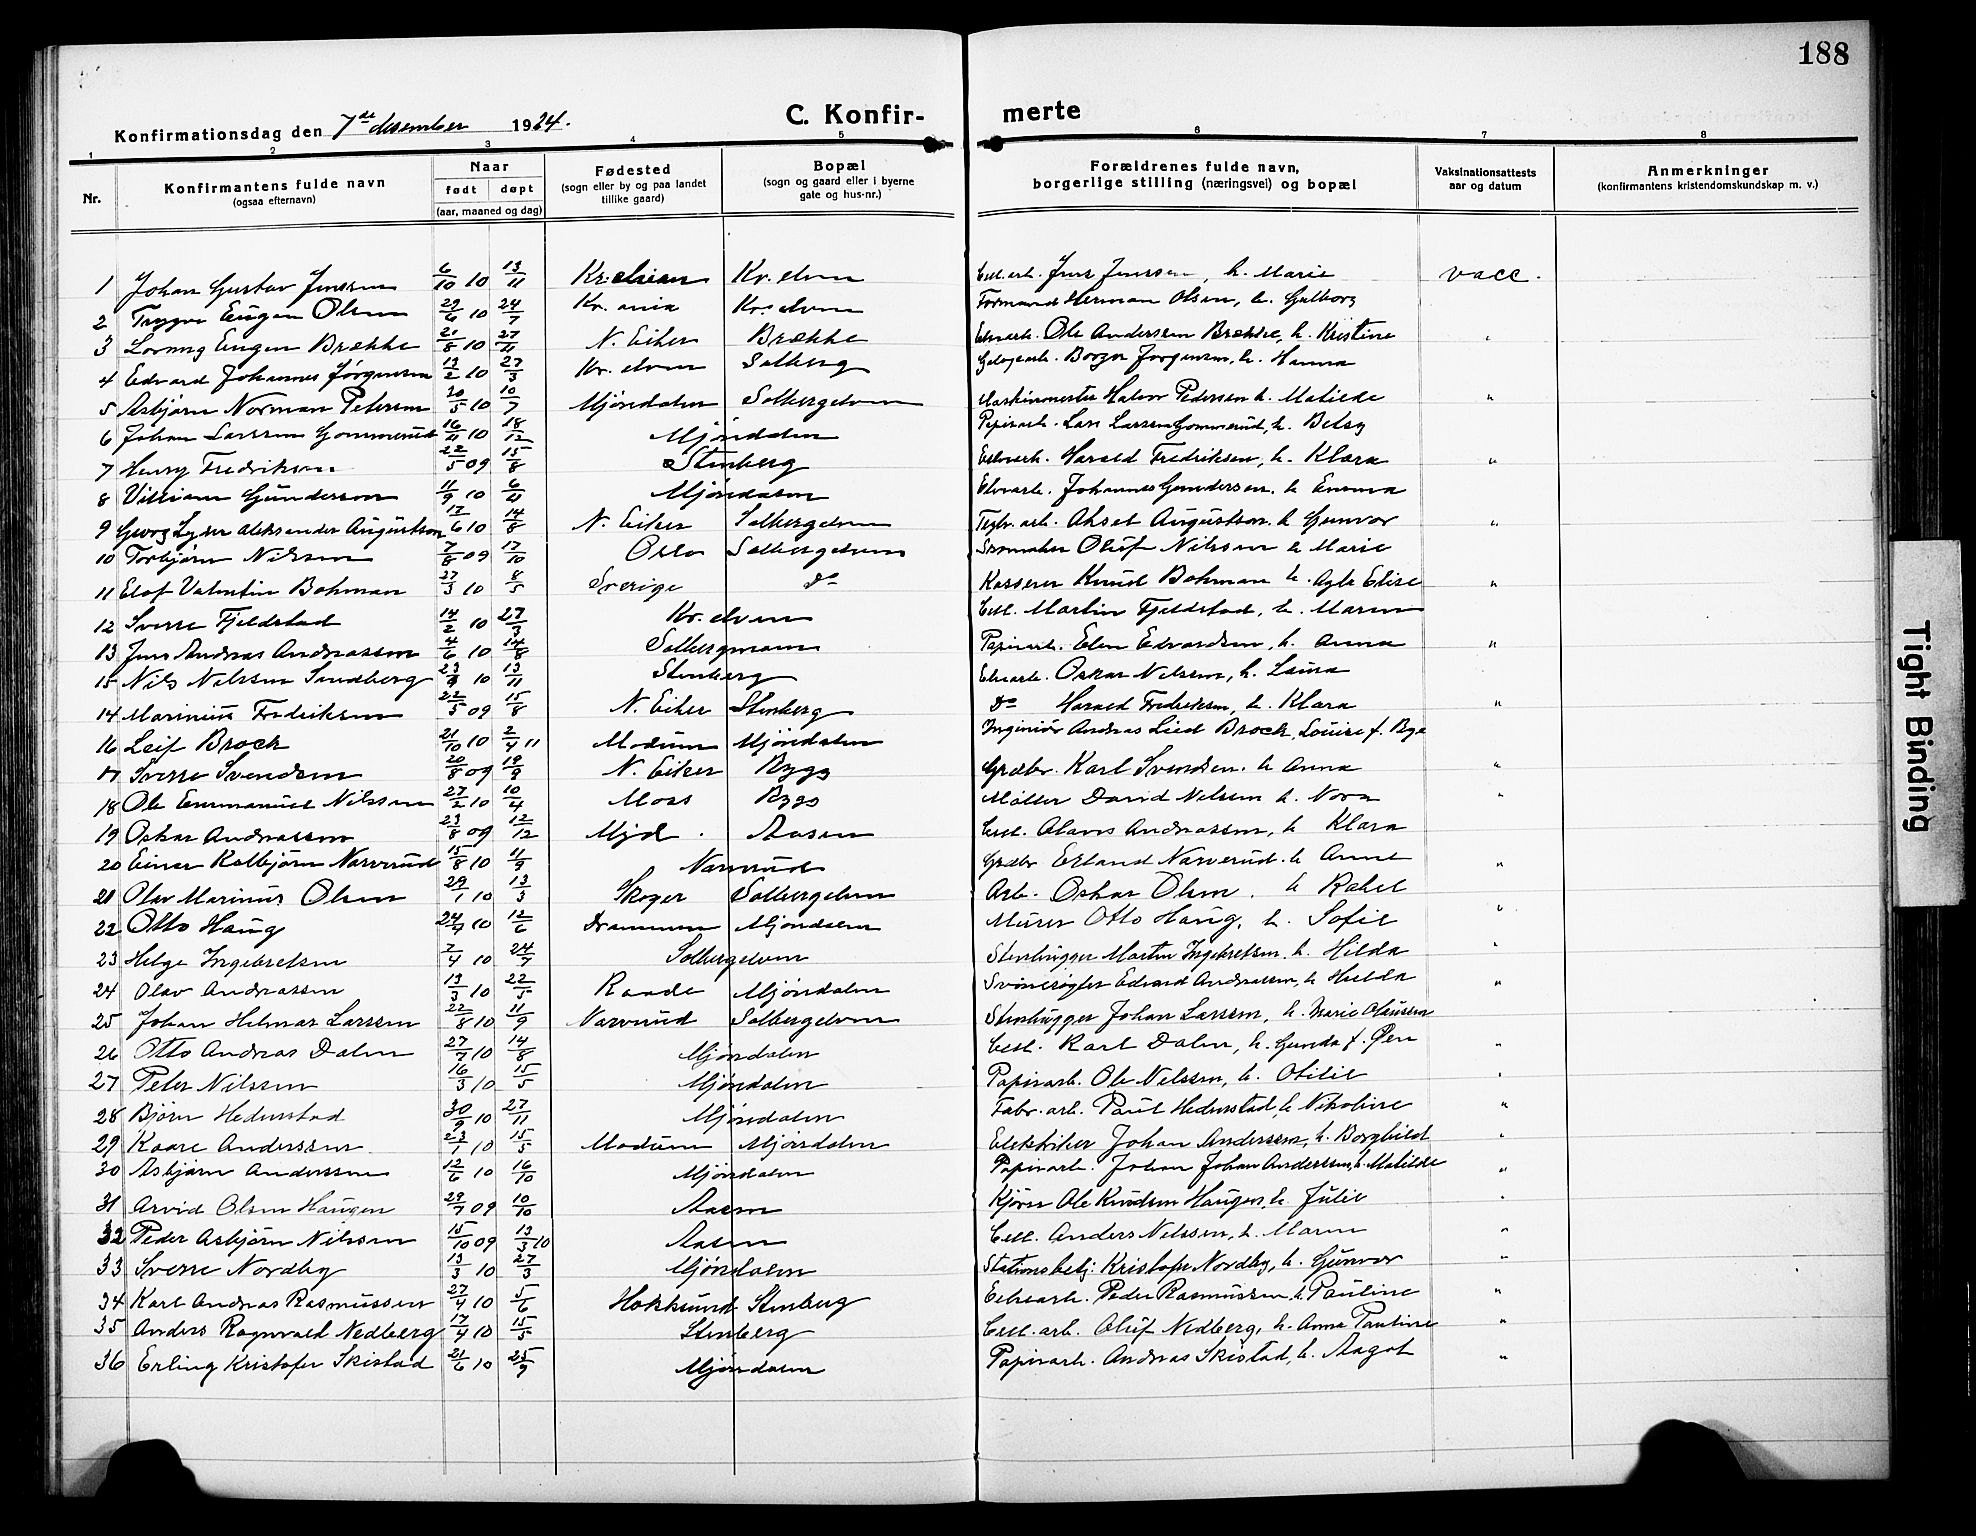 188
Konfirmationsdag den 7de desember 1924.
C. Konfir-
merte
1 2 3 4 5 6 7 8
Nr.
Konfirmantens fulde navn
(ogsaa efternavn)
Naar
født døpt
(aar, maaned og dag)
Fødested
(sogn eller by og paa landet
tillike gaard)
Bopæl
(sogn og gaard eller i byerne
gate og hus-nr.)
Forældrenes fulde navn,
borgerlige stilling (næringsvei) og bopæl
Vaksinationsattests
aar og datum
Anmerkninger
(konfirmantens kristendomskundskap m. v.)
1 Johan Gustav Jenssen 6/10 10 13/11 Kr. elven Kr. elven Cell. arb. Jens Jenssen, h. Marie vacc.
2 Trygve Eugen Olsen 29/6 10 24/7 Kr. ania Kr. elven Formand Herman Olsen, h. Gulborg
3 Eugen Brække 21/8 10 27/11 N. Eiker Brække Elvearb. Ole Anderssen Brække, h. Kristine "
4 Edvard Johannes Jørgensen 13/2 10 27/3 Kr. elven Solberg Borger Jørgensen, h. Hanna
5 Asbjørn Norman Petersen 20/5 10 10/7 Mjøndalen Solbergelven Maskinmester Halvor Pedersen h. Matilde "
6 Johan Larssen Gommerud 16/11 10 18/12 Mjøndalen Papirarb. Lars Larssen Gommerud, h. Betsy
7 Henry Fredriksen 22/5 09 15/8 Stenberg Elvearb. Harald Fredriksen, h. Klara "
8 William Gundersen 11/9 10 6/11 Mjøndalen Elvearb. Johannes Gundersen. h Emma
9 Georg Lyder Aleksander Augustson 17/6 10 14/8 N. Eiker Solbergelven Teglv. arb. Aksel Augustson. h Gunvor "
10 Torbjørn Nilsen 7/8 09 17/10 Oslo Solbergelven Skomaker Oluf Nilssen h Marie
11 Elof Valentin Bohman 27/3 10 8/5 Sverige do Kasserer Knud Bohman h. Elise "
12 Sverre Fjeldstad 14/2 10 27/3 Kr. elven Cell. Martin Fjeldstad, h. Maren
13 Jens Andreas Andreassen 4/6 10 14/8 Solbergmoen Papirarb. Edvardsen, h. Anna "
15 Nils Nilssen Sundberg 23/9 10 13/11 Stenberg Elvearb. Oskar Nilssen, h. Laura
14 Marinius Fredriksen 22/5 09 15/8 N. Eiker Stenberg do Harald Fredriksen, h. Klara "
16 Leif Broch 21/10 10 2/4 11 Modum Mjøndalen Ingeniør Andreas Lied Broch, Louise f. Bye
17 Sverre Svendsen 20/8 09 19/9 N. Eiker Bygg Grdbr. Karl Svendsen. h Anna "
18 Ole Emmanuel Nilssen 27/2 10 10/4 Moss Bygg Møller David Nilssen h. Nora "
19 Oskar Andreassen 23/8 09 12/12 Mjd. Aasen Cell. Olavus Andreassen, h Klara
20 Einar Kolbjørn Narverud 15/8 10 11/9 Narverud Grdbr Erland Narverud. h Anne "
21 Olav Marinius Olsen 29/1 10 13/3 Skoger Solbergelven Arb. Oskar Olsen. h Rakel
22 Otto Haug 24/4 10 12/6 Drammen Mjøndalen Murer Otto Haug, h. Sofie "
23 Helge Ingebretsen 7/4 10 24/7 Solbergelven Stenhugger Martin Ingebretsen. h. Hilda "
24 Olav Andreassen 13/3 10 22/5 Raade Mjøndalen Svinerøgter Edvard Andreassen, h Hulda "
25 Johan Helmer Larssen 22/8 10 11/9 Narverud Solbergelven Stenhugger Johan Larssen, h. Marie Claussen
26 Otto Andreas Dalen 27/7 10 14/8 Mjøndalen Cell. Karl Dalen, h. Gunda f. Øen "
27 Peter Nilssen 16/3 10 15/5 Mjøndalen Papirarb. Ole Nelssen, h. Otilie "
28 Bjørn Hedenstad 30/9 10 27/11 Mjøndalen Fabr. arb. Paul Hedenstad, h Nikoline "
29 Kaare Anderssen 23/1 10 15/5 Modum Mjøndalen Elektriker Johan Anderssen, h. Borghild "
30 Asbjørn Anderssen 12/6 10 16/10 Mjøndalen Papirarb. Johan Johan Anderssen, h. Matilde "
31 Arvid Olsen Haugen 29/7 09 10/10 Aasen Kjører Ole Knudsen Haugen, h. Julie "
32 Peder Asbjørn Nilssen 15/10 09 13/3 10 Aasen Cell. Anders Nilssen, h. Maren "
33 Sverre Nordby 13/3 10 27/3 Mjøndalen Stationsbetj: Kristofer Nordby, h. Gunvor "
34 Karl Andreas Rasmussen 27/4 10 5/6 Hokksund Stenberg Elvearb. Peder Rasmussen, h. Pauline "
35 Anders Ragnvald Nedberg 17/4 10 15/5 Stenberg Cell. arb. Oluf Nedberg, h. Anna Pauline "
36 Erling Kristofer Skistad 21/6 10 25/9 Mjøndalen Papirarb. Andreas Skistad, h. Aagot "
Tight Binding